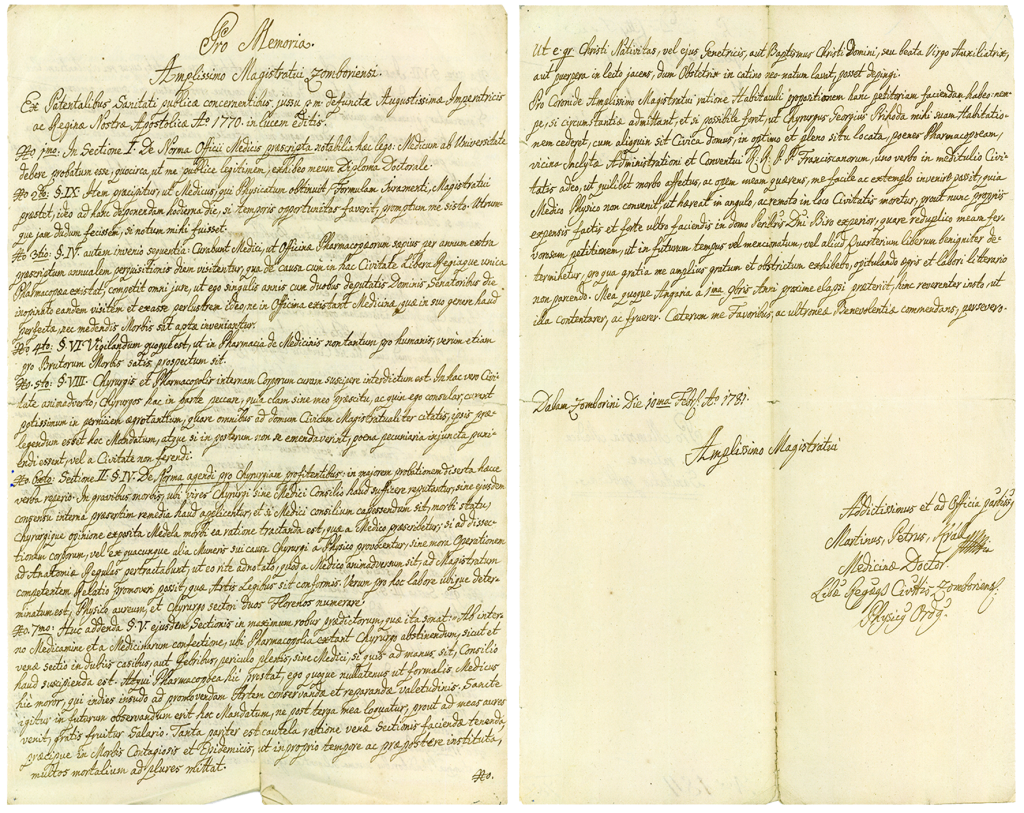 Pro Memoria.
Amplissimo Magistratui Zomboriensi.
Ex Patentalibus Sanitati publicæ concernentibus, jussu p.m. defunctæ Augustissimæ Imperatricis
ac Reginæ Nostræ Apostolicæ Aō 1770. in lucem editis.
1mo: In Sectione I. De Norma Officii Medicis præscripta notabilia hæc lego: Medicum ab Universitate
debere probatum esse, quocirca, ut me publice legitimem, exhibeo meum Diploma Doctorale.
2do: §. IX. Item præcipitur, ut Medicus, qui Physicatum obtinuit, Formulam Juramenti, Magistratui
præstet, ideo ad hanc deponendam hodierna die, si temporis opportunitas faverit, promptum me sisto. Utrumque
jam dudum fecissem, si notum mihi fuisset.
3tio: §. IV. autem invenio sequentia: Curabunt Medici, ut Officinæ Pharmacopæorum sæpius per annum extra
præscriptum annualem perquisitionis diem visitentur, qua de causa cum in hac Civitate Libera Regiaque unica
Pharmacopæa existat, competit omni jure, ut ego singulis annis cum duobus deputatis Dominis Senatoribus die
inopinato eandem visitem et exacte perlustrem, idque ne in Officina existant Medicinæ, quæ in suo genere haud
perfectæ, nec medendis Morbis sat aptæ inveniantur.
4to: §. VI. Vigilandum quoque est, ut in Pharmacia de Medicinis non tantum pro humanis, verum etiam
pro Brutorum Morbis satis prospectum sit.
5to: §. VIII. Chyrurgis et Pharmacopolis internam Corporum curam suscipere interdictum est. In hac vero Civitate
animadverto, Chyrurgos hac in parte peccare, quia clam sine meo præscitu, ac quin ego consular, curent
potissimum in perniciem ægrotantium, quare omnibus ad domum Civicam Magistratualiter citatis, ipsis prælegendum
esset hoc Mandatum, atque si in posterum non se emendaverint, poena pecuniaria injuncta puniendi
essent, vel a Civitate non ferendi.
6to: Sectione II. §. IV. De Norma agendi pro Chyrurgiam profitentibus: in majorem probitionem diserta hæcce
verba reperio: In gravibus morbis, ubi vires Chyrurgi sine Medici Consilio haud sufficere reputantur, sine ejusdem
consensu interna præsertim remedia haud applicentur, et si Medici consilium capessendum sit, morbi statu,
Chyrurgique opinione exposita Medela morbi ea ratione tractanda est, quæ a Medico præscribetur; si ad dissectionem
corporum, vel ex quacunque alia Muneris sui causa Chyrurgi a Physico provocentur, sine mora Operationem
ad Anatomiæ Regulas pertractabunt, ut eo rite adnotato, quod a Medico animadversum sit, ad Magistratum
competentem Relatio promoveri possit, quæ Artis Legibus sit conformis. Verum pro hoc labore ubique determinatum
est, Physico aureum, et Chyrurgo sectori duos Florenos numerare.
7mo: Huc addenda §. V. ejusdem Sectionis in maximum robur prædictorum, quæ ita sonat: Ab interno
Medicamine et a Medicinarum confectione, ubi Pharmacopolia extant Chyrurgo abstinendum, sicut et
venæ sectio in dubiis casibus, aut Febribus, periculo plenis, sine Medici, si quis ad manus sit, Consilio
haud suscipienda est. Atqui Pharmacopoea hic præstat, ego quoque nullatenus ut formalis Medicus
hic moror, qui indies insudo ad promovendam Artem conservandæ et reparandæ valetudinis. Sancte
igitur in futurum observandum erit hoc Mandatum, ne post terga mea loquatur, prout ad meas aures
venit, gratis fruitur Salario. Tanta pariter est cautela rattione venæ Sectionis faciendæ tenenda
præcipue in Morbis Contagiosis et Epidemicis, ut improprio tempore ac præpostere instituta,
multos mortalium ad plures mittat.
Ut e. gr. Christi Nativitas, vel ejus Genetricis, aut Baptismus Christi Domini, seu beata Virgo Auxiliatrix,
aut puerpera in lecto jacens, dum Obstetrix in catino neo-natum lavit, posset depingi.
Pro Coronide Amplissimo Magistratui ratione Habitaculi propositionem hanc petitoriam faciendam habeo nempe,
si circumstantiæ admittant, et si possibile foret, ut Chyrurgus Georgius Prihoda mihi suam Habitationem
cederet, cum aliquin sit Civica domus, in optimo et pleno situ locata, poenes Pharmacopoeam,
vicina Inclytæ Administrationi et Conventui R.R. P.P. Franciscanorum, uno verbo in meditulio Civitatis
adeo, ut quilibet morbo affectus, ac opem meam quærens, me facile ac extemplo invenire possit, quia
Medico Physico non convenit, ut hæreat in angulo, ac remoto in loco Civitatis moretur, prout nunc propriis
expensis factis et forte ultro faciendis in domo Dni Biro experior, quare reduplico meam fervorosam
petitionem, ut in futurum tempus vel mentionatum, vel aliud Quarterium liberum benigniter determinetur,
pro qua gratia me amplius gratum et obstrictum exhibebo, opitulando ægris et labori literario
non parendo. Mea quoque Angaria a 1ma 9bris Anni proxime elapsi præteriit, hinc reverenter insto, ut
illa contentarer, ac fruerer. Cæterum me Favoribus, ac ultroneæ Benevolentiæ commendans, persevero.
Dabam Zomborini Die 10ma Febr. Aō 1781.
Amplissimo Magistratui
Addictissimus et ad Officia
Martinus, Petrus,
Medicinæ Doctor.
Physicus